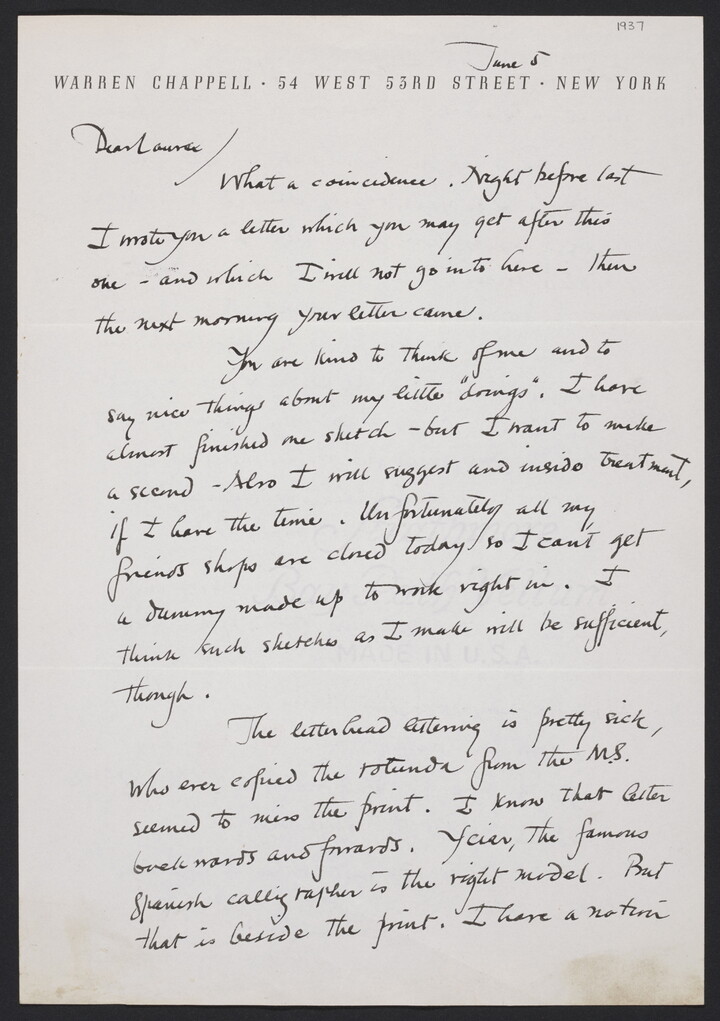 1937
June 5
WARREN CHAPPELL · 54 WEST 53RD STREET · NEW YORK
Dear Laurex
What a coincidence. Night before last
I wrote you a letter which you may get after this
one - and which I will not go into here - Then
the next morning your letter came.
You are kind to think of me and to
say nice things about my little "doings". I have
almost finished one sketch - but I want to make
a second - Also I will suggest and inside treatment,
if I have the time. Unfortunately all my
friends shops are closed today so I cant get
a dummy made up to work right in. I
think such sketches as I make will be sufficient,
though.
The letterhead lettering is pretty sick,
who ever copied the rotunda from the M.S.
seemed to miss the point. I know that letter
backwards and forwards. Yciar, the famous
Spanish calligrapher is the right model. But
that is beside the point. I have a notion
MADE IN U.S.A.